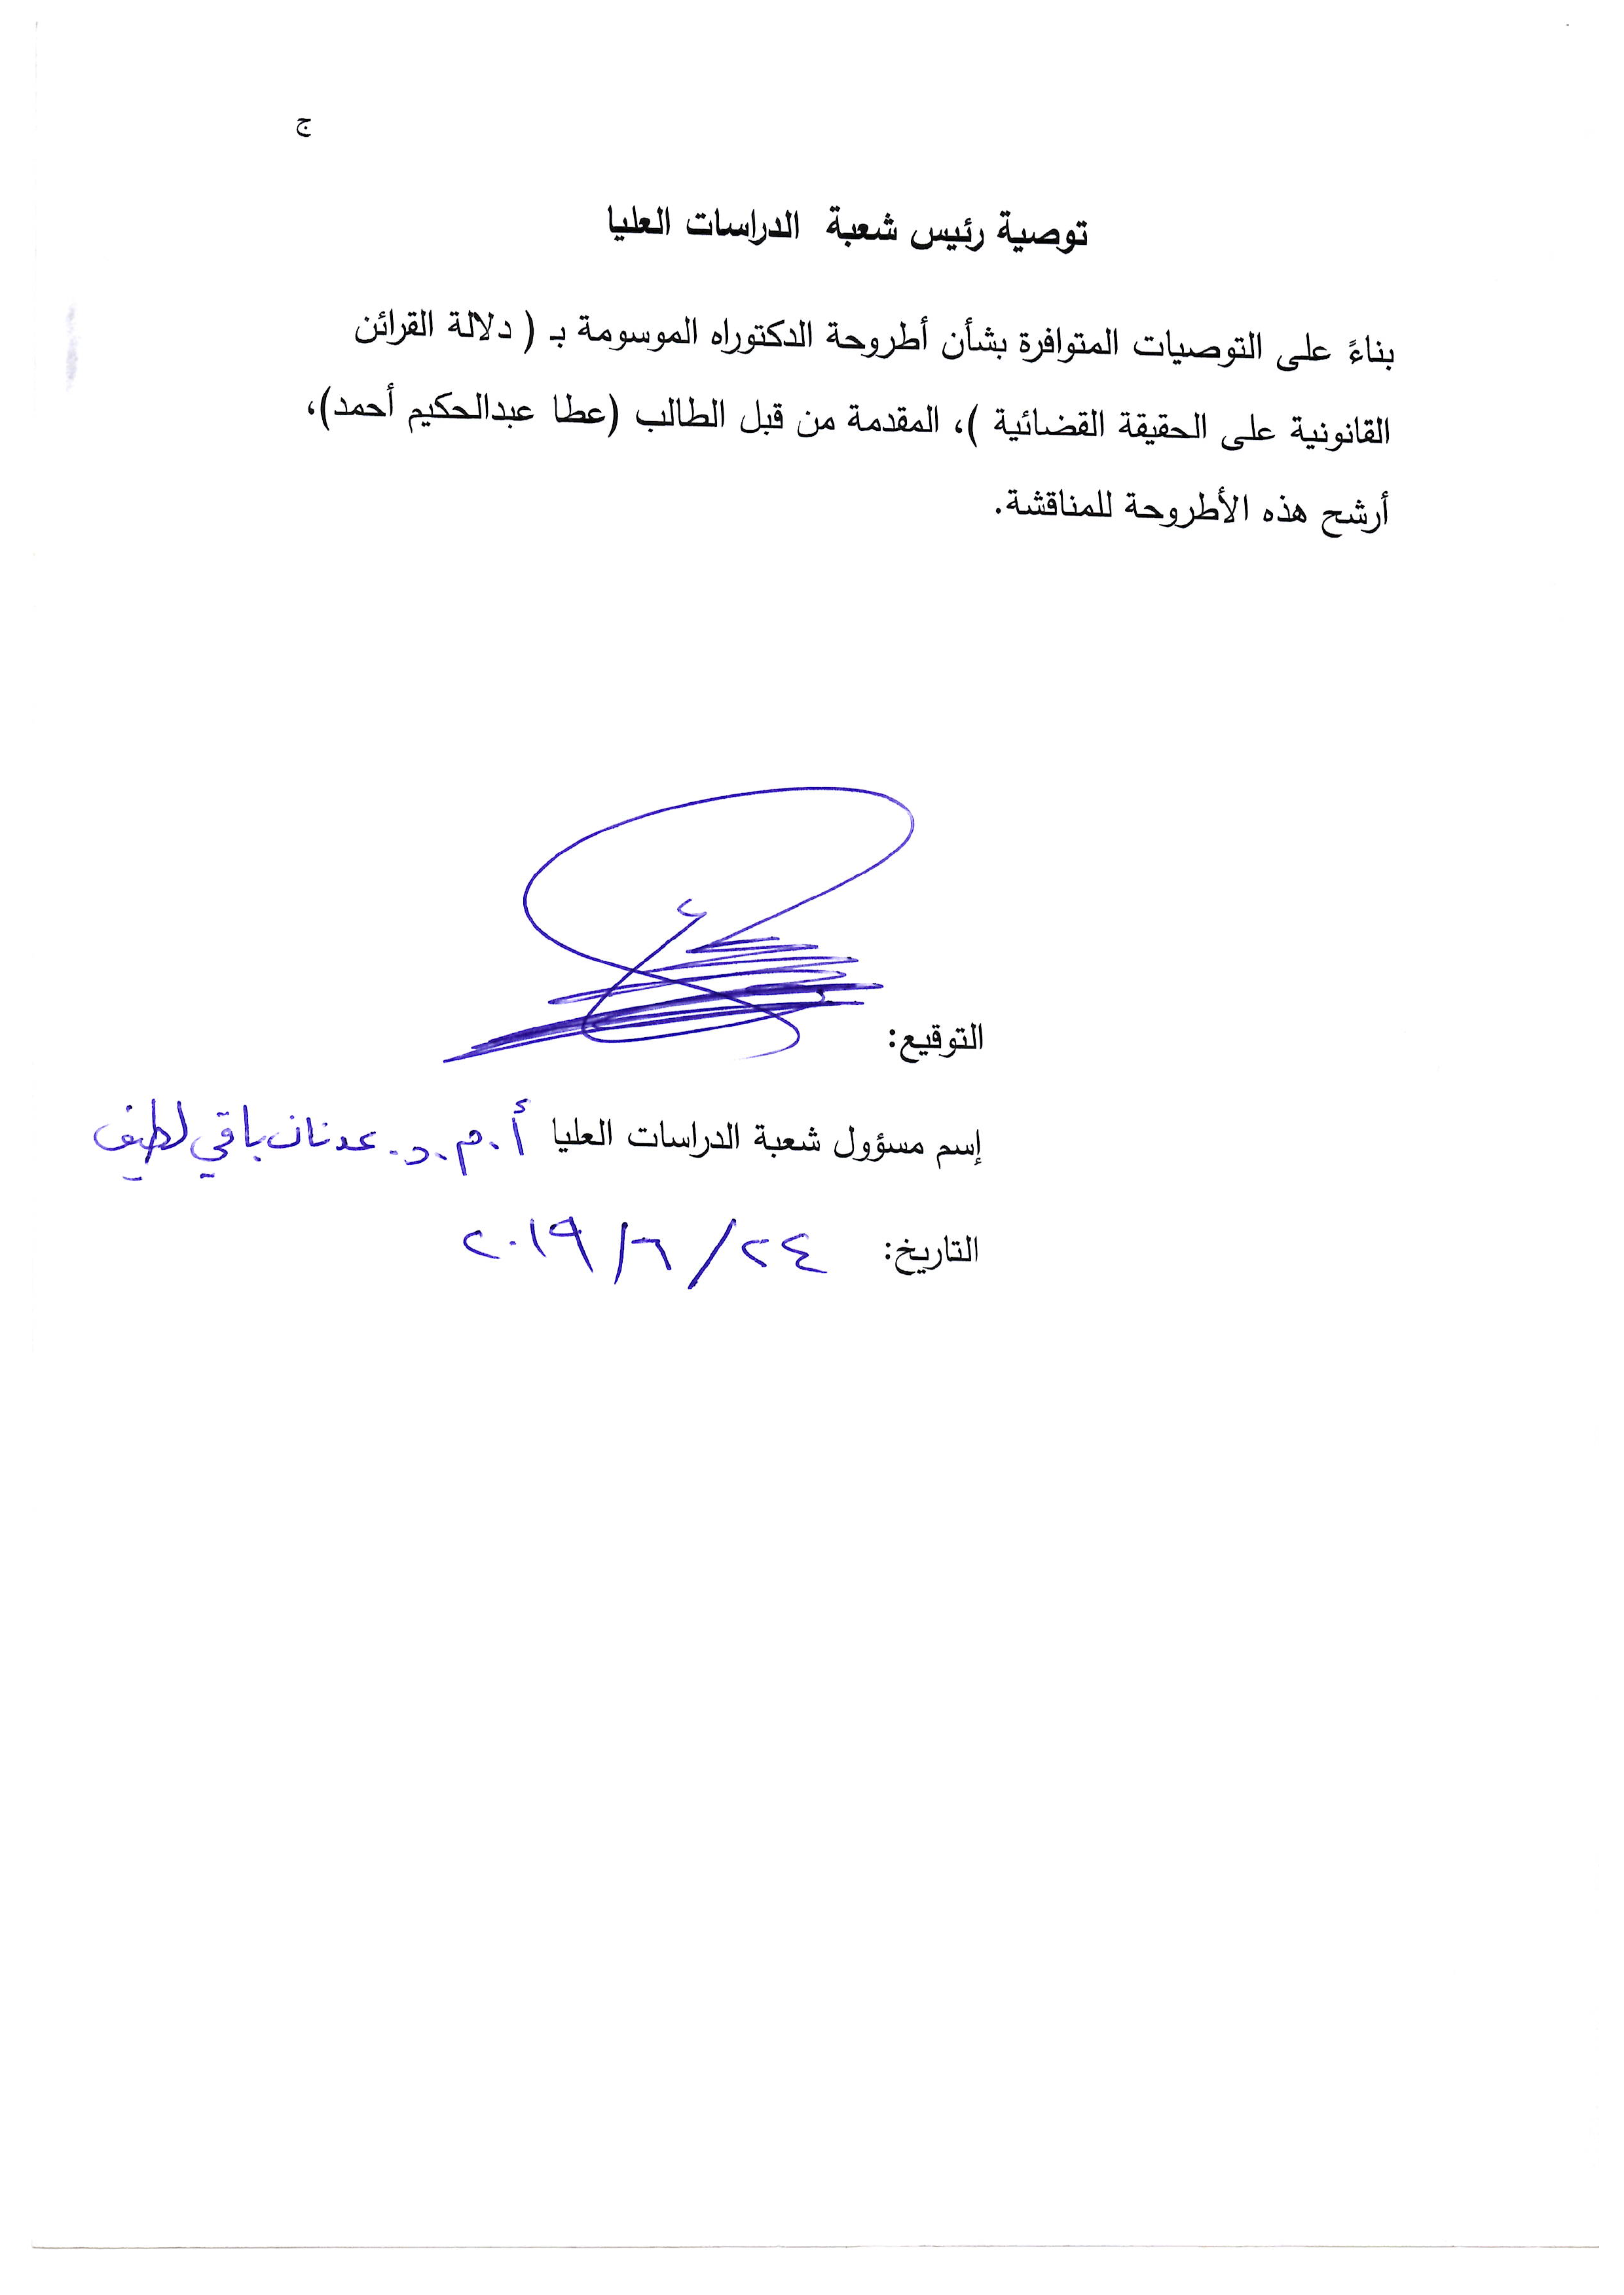 ج
توصية رئيس شعبة الدراسات العليا
بناءً على التوصيات المتوافرة بشأن أطروحة الدكتوراه الموسومة بـ ( دلالة القرائن
القانونية على الحقيقة القضائية )، المقدمة من قبل الطالب (عطا عبدالحكيم أحمد)،
أرشح هذه الأطروحة للمناقشة.
التوقيع:
إسم مسؤول شعبة الدراسات العليا أ.م.د. عدنان باقي لطيف
التاريخ: ٢٤/٦/٢٠١٩